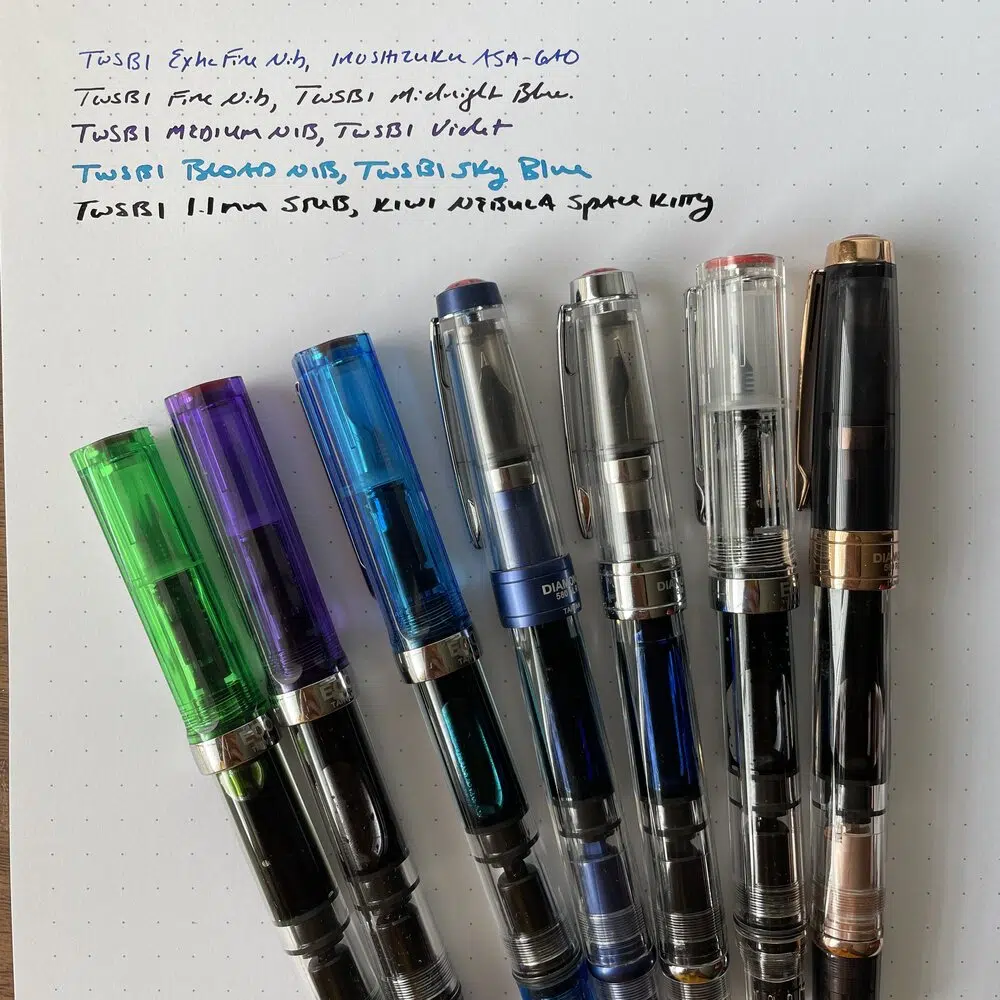 TWSBI Extra Fine Nib, IROSHIZUKU ASA-GAO
TWSBI Fine Nib, TWSBI Midnight Blue.
TWSBI MEDIUM NIB, TWSBI Violet
TWSBI BROAD NIB, TWSBI Sky Blue
TWSBI 1.1mm STUB, KIWI NEBULA Space Kitty
DIAMO
580
TA
DIA
E
DIA
5
E
TA
E
TAI
E